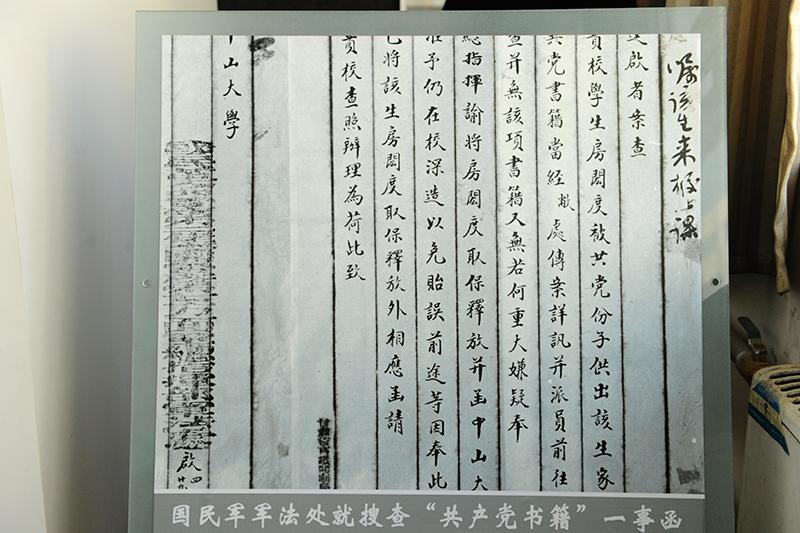 嘱该生来校上课
迳啟者案查
貴校學生房閎度被共党份子供出該生家
共党書籍當經敝處傳案詳訊并派員前往
查并無該項書籍又無若何重大嫌疑奉
總指揮諭將房閎度取保釋放并函中山大
准予仍在校深造以免貽誤前途等因奉此
已將該生房閎度取保釋放外相應函請
貴校查照辦理為荷此致
中山大學
啟 四 廿
国民军军法处就搜查“共产党书籍”一事函